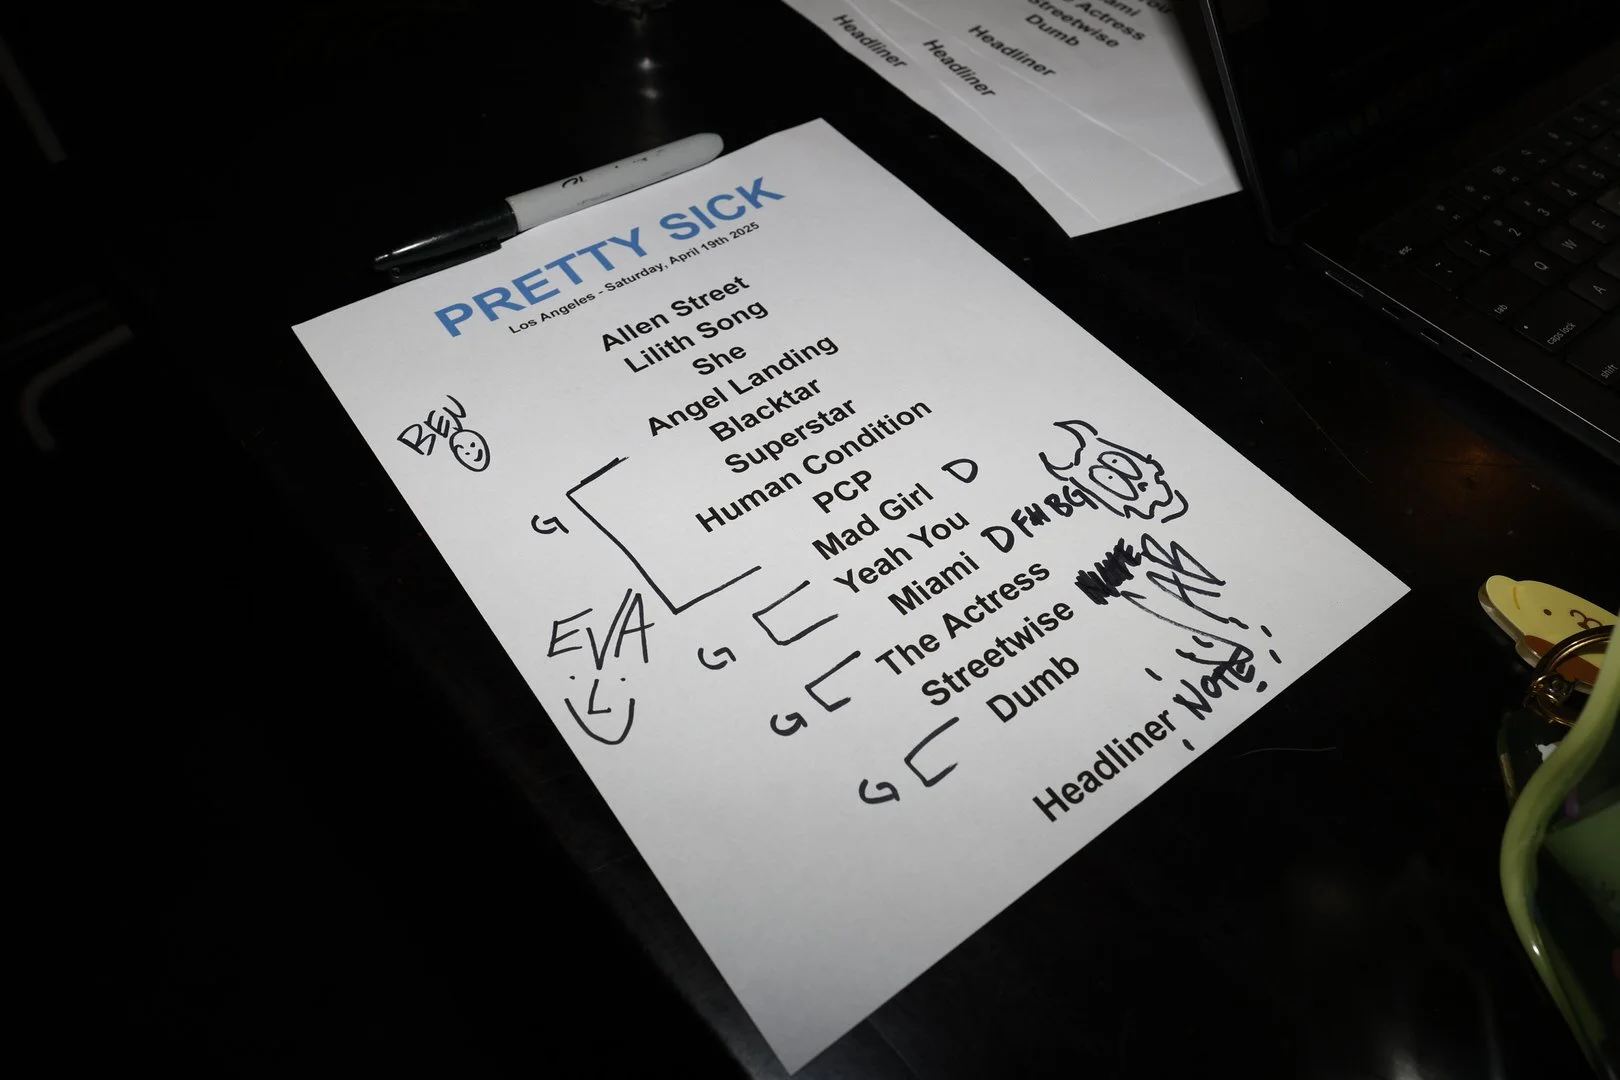 PRETTY SICK
Los Angeles - Saturday, April 19th 2025
Allen Street
Lilith Song
She
Angel Landing
Blacktar
Superstar
Human Condition
PCP
Mad Girl D
Yeah You
Miami D FH BG
The Actress
Streetwise
Dumb
Headliner NOTE
BEN
G
EVA
G
G
G
Actress
Streetwise
Dumb
Headliner
Headliner
Headliner
esc
1
2
3
Q
W
E
tab
A
caps lock
shift